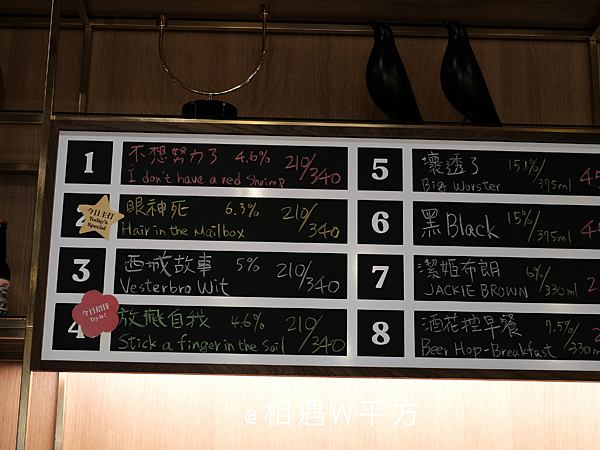 1 不想努力了 4.6% 210/340
I don't have a red shrimp
今日主打
Today's Special
眼神死 6.3% 210/340
Hair in the Mailbox
3 西城故事 5% 210/340
Vesterbro Wit
4 今日招待
Try it!
放癈自我 4.6% 210/340
Stick a finger in the Soil
5 壞透了 15.1%/375ml
Big Worster
6 黑Black 15%/375ml
7 潔姬布朗 6%/330ml
JACKIE BROWN
8 酒花控早餐 7.5%/330m
Beer Hop-Breakfast
@相遇W平方